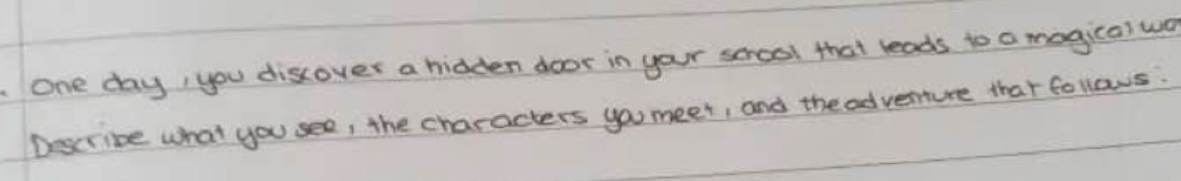 . One day, you discover a hidden door in your school that leads to a magical wo
Describe what you see, the characters you meet, and the adventure that follows.